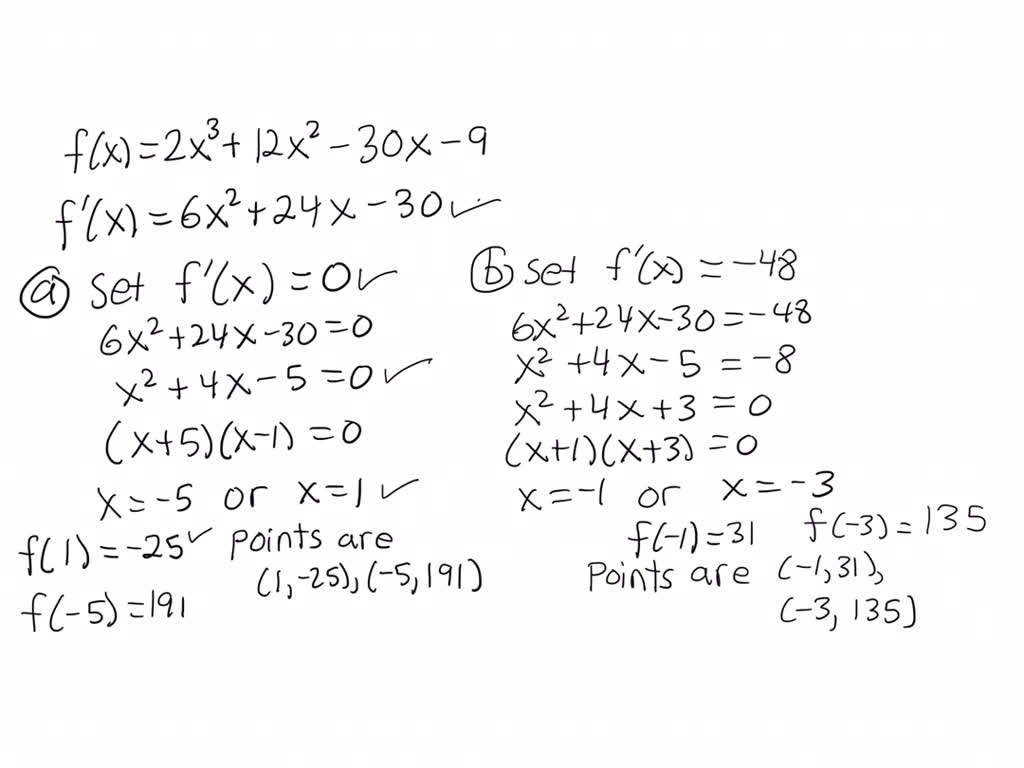 f(x) = 2x³ + 12x² - 30x - 9
f'(x) = 6x² + 24x - 30 ✓
ⓐ Set f'(x) = 0 ✓
6x² + 24x - 30 = 0
x² + 4x - 5 = 0 ✓
(x+5)(x-1) = 0
x = -5 or x = 1 ✓
f(1) = -25 ✓ points are
(1, -25), (-5, 191)
f(-5) = 191
ⓑ Set f'(x) = -48
6x² + 24x - 30 = -48
x² + 4x - 5 = -8
x² + 4x + 3 = 0
(x+1)(x+3) = 0
x = -1 or x = -3
f(-1) = 31 f(-3) = 135
Points are (-1, 31),
(-3, 135)